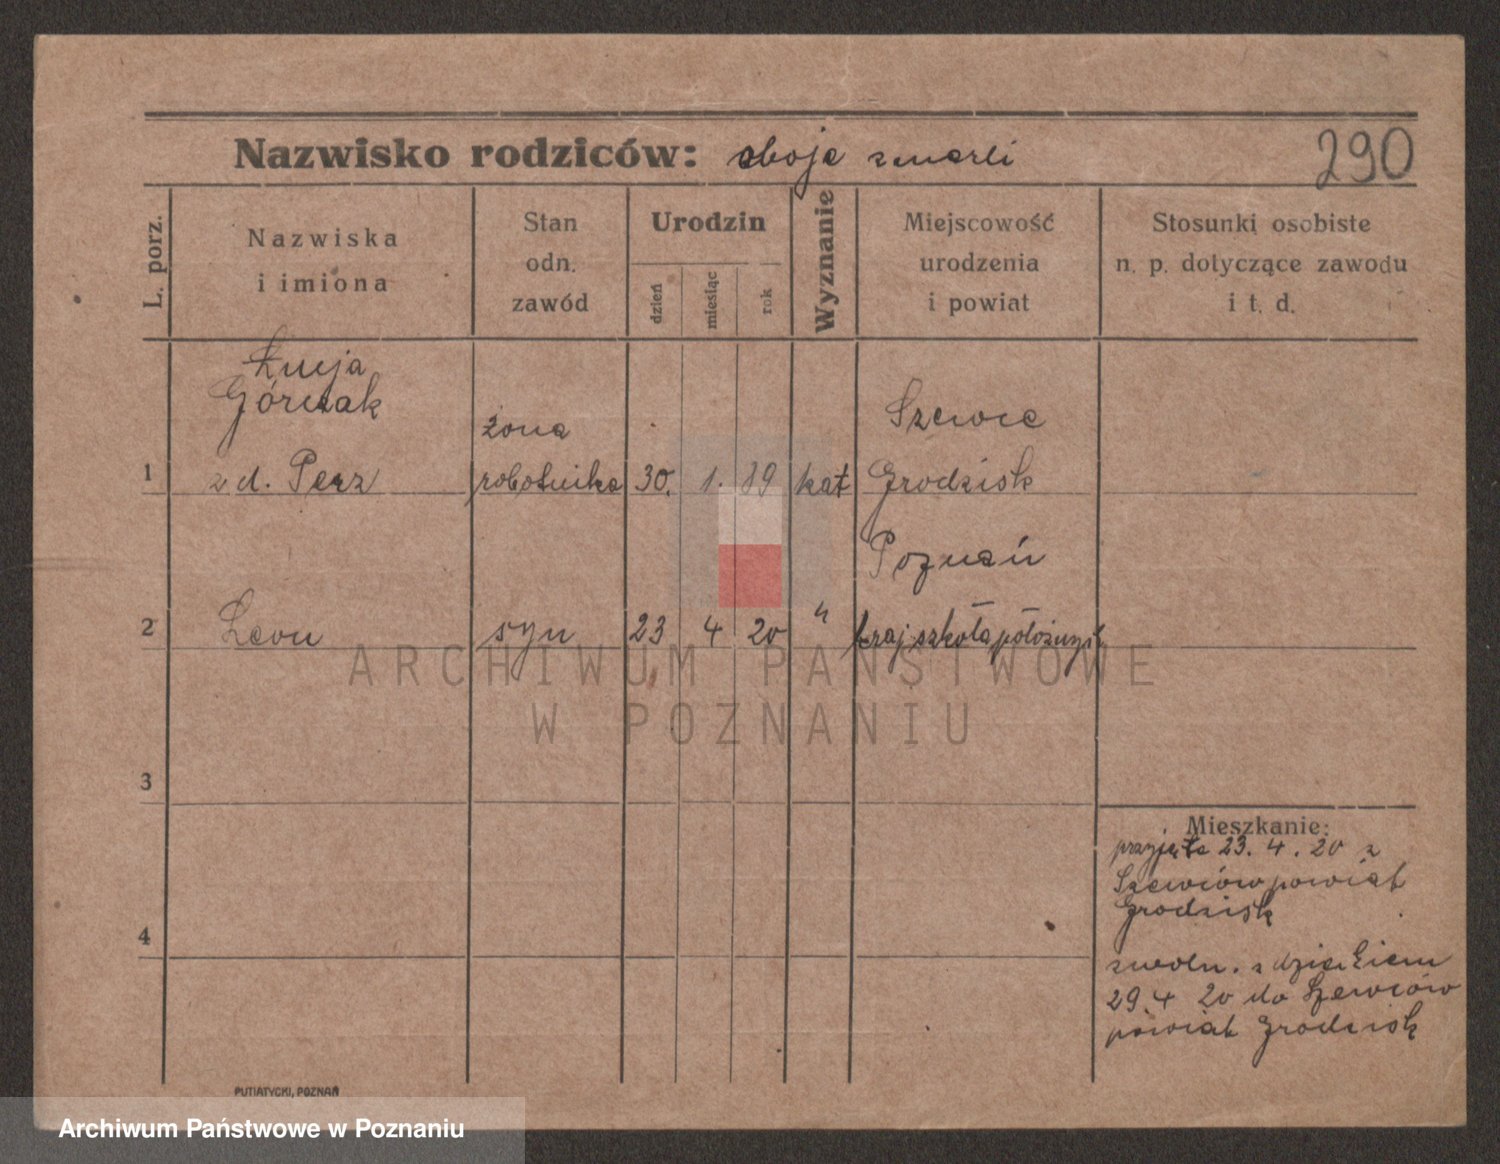 Nazwisko rodziców: oboje zmarli
290
L. porz.
Nazwiska
i imiona
Stan
odn.
zawód
Urodzin
dzień
miesiąc
rok
Wyznanie
Miejscowość
urodzenia
i powiat
Stosunki osobiste
n. p. dotyczące zawodu
i t. d.
Łucja
Górczak
1 z d. Perz
żona
robotnika 30. 1. 89 kat
Szewce
Grodzisk
Poznań
2 Leon syn 23 4 20 "
kraj szkoła położnych
3
4
Mieszkanie:
przyjęta 23. 4. 20 z
Szewców powiat
Grodzisk
zwoln. z dzieckiem
29. 4 20 do Szewców
powiat Grodzisk
ARCHIWUM PAŃSTWOWE
W POZNANIU
PUTIATYCKI, POZNAŃ
Archiwum Państwowe w Poznaniu